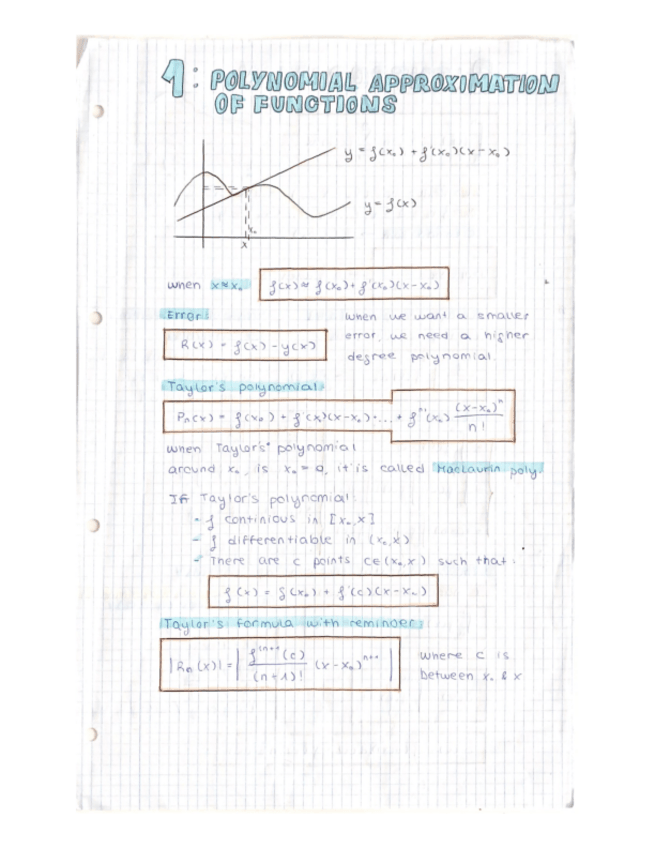 1: POLYNOMIAL APPROXIMATION
OF FUNCTIONS
y = f(x₀) + f'(x₀)(x-x₀)
y = f(x)
x₀
x
when x≈x₀ f(x) ≈ f(x₀) + f'(x₀)(x-x₀)
Error:
R(x) = f(x) - y(x)
when we want a smaller
error, we need a higher
degree polynomial.
Taylor's polynomial:
Pn(x) = f(x₀) + f'(x)(x-x₀) + ... + fⁿ(x₀) (x-x₀)ⁿ / n!
when Taylor's polynomial
around x₀ is x₀ = 0, it is called Maclaurin poly.
If Taylor's polynomial:
- f continious in [x₀,x]
- f differentiable in (x₀,x)
- There are c points c∈(x₀,x) such that:
f(x) = f(x₀) + f'(c)(x-x₀)
Taylor's formula with reminder:
|Rn(x)| = | f⁽ⁿ⁺¹⁾(c) / (n+1)! (x-x₀)ⁿ⁺¹ |
where c is
between x₀ & x